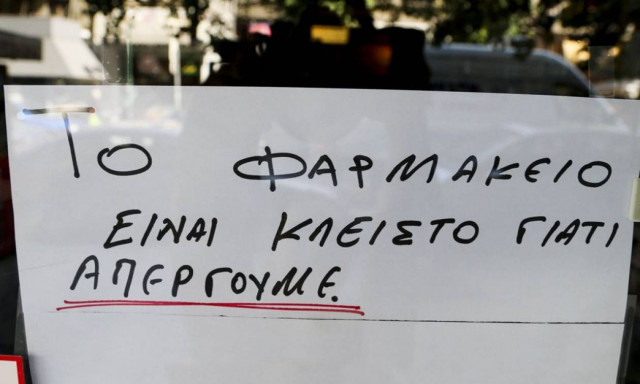 Το ΦΑΡΜΑΚΕΙΟ
ΕΙΝΑΙ ΚΛΕΙΣΤΟ ΓΙΑΤΙ
ΑΠΕΡΓΟΥΜΕ.